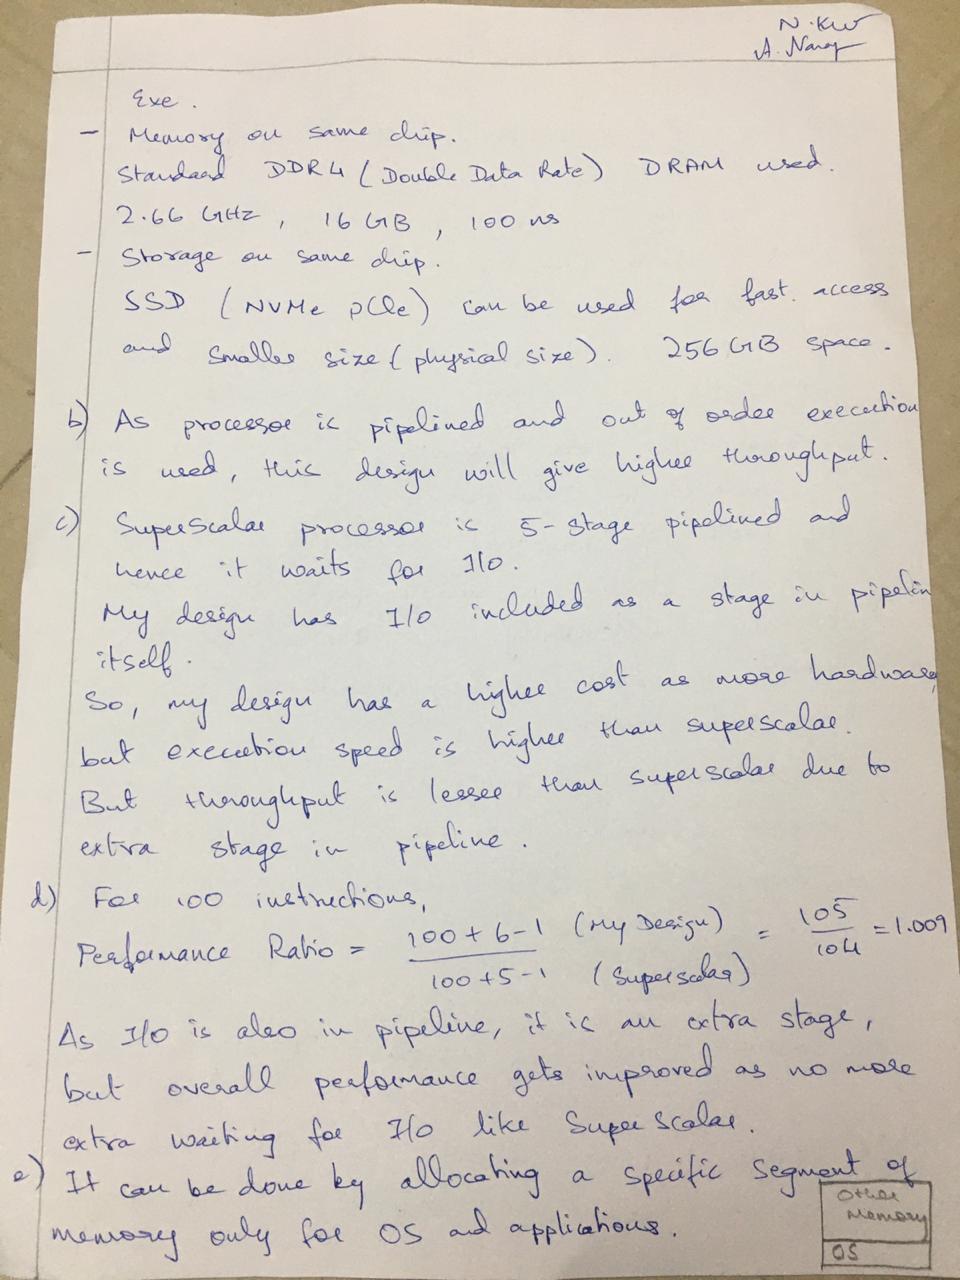 N.KW
A. Naray
Exe.
- Memory on same chip.
Standard DDR4 (Double Data Rate) DRAM used.
2.66 GHz, 16 GB, 100 ns
- Storage on same chip.
SSD (NVMe PCIe) can be used for fast access
and smaller size (physical size). 256 GB space.
b) As processor is pipelined and out of order execution
is used, this design will give higher throughput.
c) Superscalar processor is 5-stage pipelined and
hence it waits for I/O.
My design has I/O included as a stage in pipelin
itself.
So, my design has a higher cost as more hardware,
but execution speed is higher than superscalar.
But throughput is lesser than superscalar due to
extra stage in pipeline.
d) For 100 instructions,
Performance Ratio = 100+6-1 (My Design) / 100+5-1 (Superscalar) = 105/104 = 1.009
As I/O is also in pipeline, it is an extra stage,
but overall performance gets improved as no more
extra waiting for I/O like Super Scalar.
e) It can be done by allocating a specific segment of
memory only for OS and applications.
Other
Memory
OS